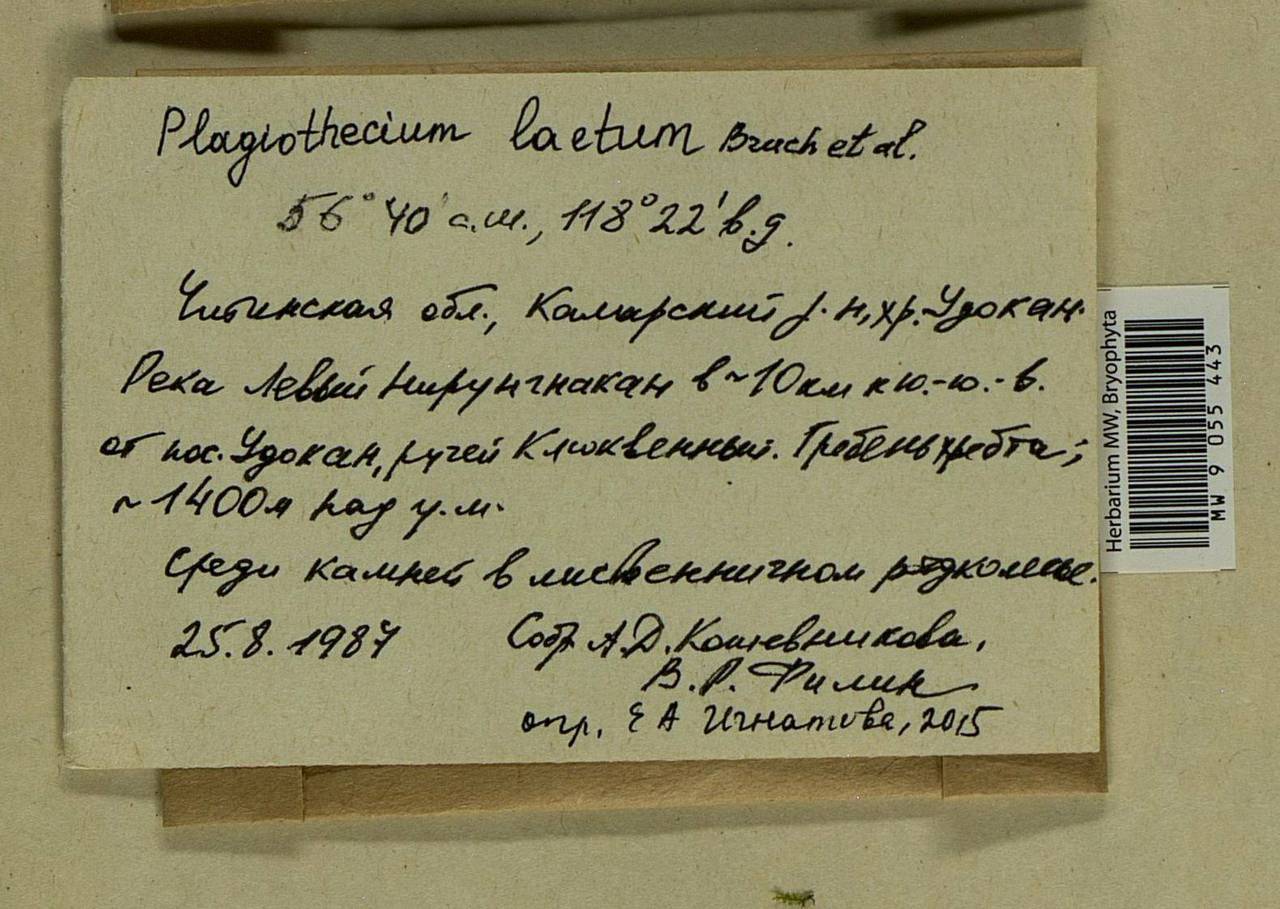 Plagiothecium laetum Bruch et al.
56° 40' с.ш., 118° 22' в.д.
Читинская обл., Каларский р-н, хр. Удокан.
Река Левый Нирунгнакан в ~10 км к ю.-ю.-в.
от пос. Удокан, ручей Клюквенный. Гребень хребта;
~1400 м над у.м.
Среди камней в лиственничном редколесье.
25.8.1987 Собр. А.Д. Кожевникова,
В.Р. Филин
опр. Е А Игнатова, 2015
Herbarium MW, Bryophyta
MW 9 055 443